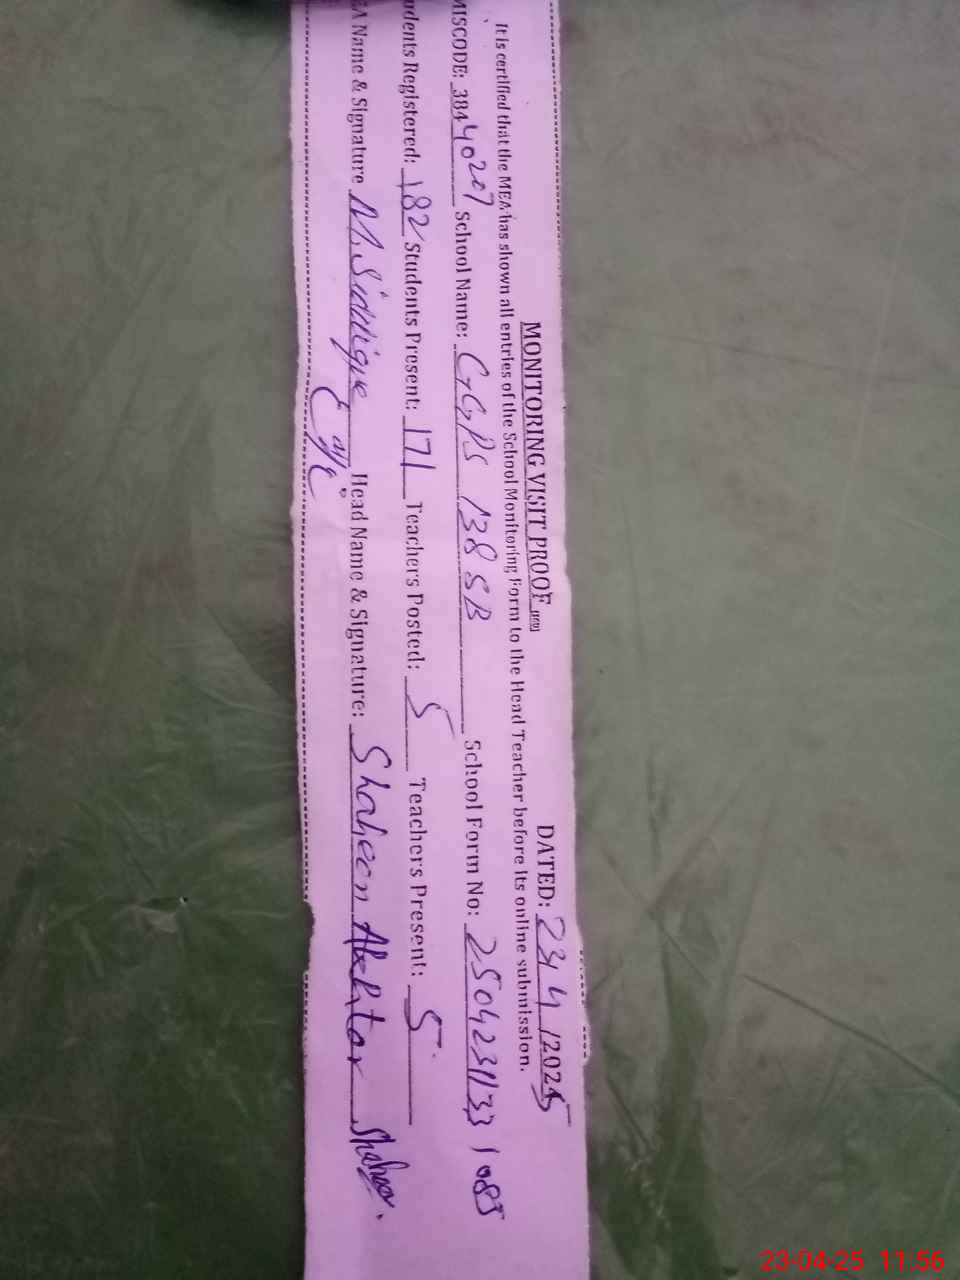 MONITORING VISIT PROOF DATED: 23/4/2025
It is certified that the MEA has shown all entries of the School Monitoring Form to the Head Teacher before its online submission.
MISCODE: 38440207 School Name: GGPS 138 SB School Form No: 25042311331085
udents Registered: 182 Students Present: 171 Teachers Posted: 5 Teachers Present: 5
EA Name & Signature M. Siddique Head Name & Signature: Shaheen Akhtar Shaheen.
23-04-25 11:56